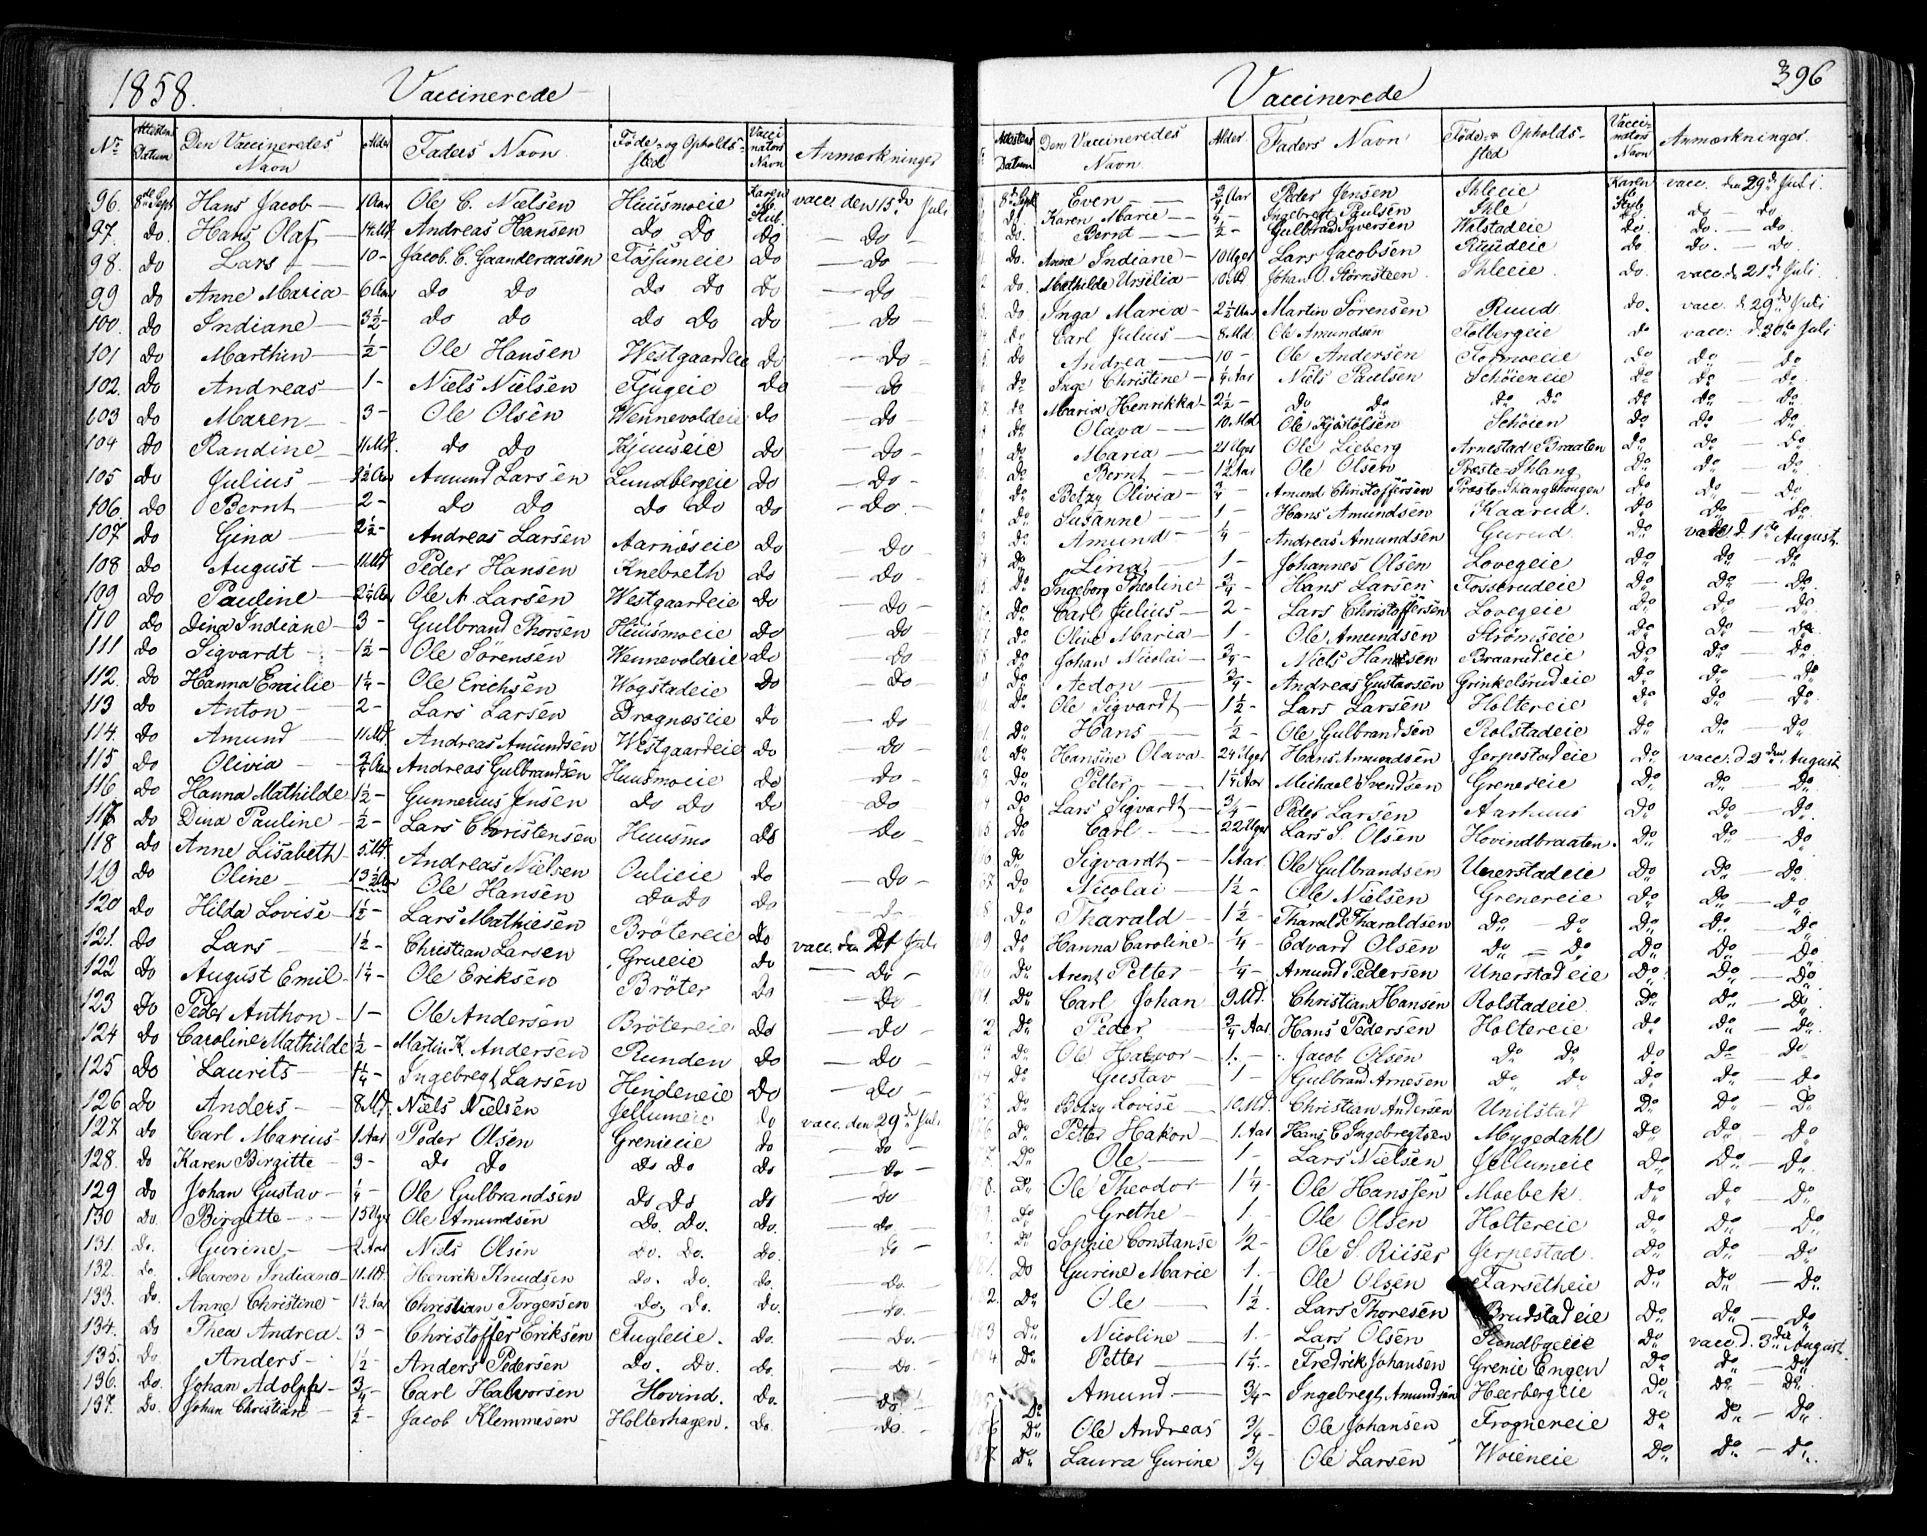 1858.
Vaccinerede
No Attestens Datum Den Vaccineredes Navn Alder Faders Navn Føde- og Opholds-sted Vaccinators Navn Anmærkninger
96. 8de Sept Hans Jacob — 1 Aar Ole C. Nielsen Huusmoeie Karen vacc. den 15de Juli
97. do. Hans Olaf — Andreas Hansen do do do — do —
98. do Lars — 10 - Jacob C. Gaanderaasen Fossumeie do — do —
99 do Anne Maria — 6 Aar do do do do do — do
100. do Indiane — 3½ - do do do do do — do —
101 do Marthin — ½ - Ole Hansen Westgaardeie do — do
102. do Andreas — 1 - Niels Nielsen Fjugeie do do
103 do Maren — 3 - Ole Olsen Wennevoldeie do — do
104 do Randine — 11 Md. do do do — do -
105 do Julius — 2½ Aar Amund Larsen Lundbergeie do — do -
106. do Bernt — 2 - do do do do do — do. -
107 do Gina — 2½ - Andreas Larsen Aarnæseie do — do -
108 do August — 11 Md. Peder Hansen Knebreth do — do -
109 do Pauline — Ole A. Larsen Westgaardeie do — do -
110 do Dina Indiane — 3 - Gulbrand Thorsen Huusmoeie do — do
111 do Sigvardt 1½ - Ole Sörensen Wennevoldeie do — do
112. do Hanna Emilie — 1¼ - Ole Erichsen Wogstadeie do — do -
113 do Anton — 2 - Lars Larsen Drognæseie do — do -
114. do Amund 11 Md. Andreas Amundsen Westgaardeie do — do -
115 do Olivia — ¾ Aar Andreas Gulbrandsen Huusmoeie do do -
116 do Hanna Mathilde 1½ - Gunnerius Jensen do do do — do
117 do Dina Pauline — ½ - Lars Christensen Huusmo do — do -
118 do Anne Lisabeth — 5 Md. Andreas Nielsen Oulieie do — do -
119 do Oline 13½ Aar Ole Hansen do do do
120 do Hilda Lovise — 1½ - Lars Mathiesen Brötereie do vacc. den 21 Juli
121. do Lars — 1½ - Christian Larsen Grueeie do — do -
122 do August Emil — 1¼ - Ole Eriksen Bröter do — do -
123 do Peder Anthon — 1 - Ole Andersen Brötereie do — do -
124 do Caroline Mathilde ½ - Martin K. Andersen Runden do — do -
125 do Laurits — 1¼ - Ingebregt Larsen Hindeneie do — do -
126 do Anders — 8 Md. Niels Nielsen Jellumeie do vacc. den 29de Juli
127 do Carl Marius — 1 Aar Peder Olsen Grenieeie do — do -
128. do Karen Birgitte — 3 - do do do do do — do -
129 do Johan Gustav — ¼ - Ole Gulbrandsen do do do — do
130 do. Birgitte — 15 Uger Ole Amundsen do. do. do. — do -
131. do. Gurine, — 2 Aar Niels Olsen do. do. do. — do -
132. do. Maren Indiana — 11 Md. Henrik Knudsen do. do. do. — do. -
133. do. Anne Christine — 1½ Aar Christian Torgersen do. do. do. — do. -
134. do Thea Andrea — 3 - Christoffer Eriksen Fugleie. do. — do. -
135. do Anders — 1½ - Anders Pedersen do. do. do. — do. -
136. do. Johan Adolph — ¾ - Carl Halvorsen Hovind. do. — do.
137. do. Johan Christian — ½ - Jacob Klemmesen Holterhagen. do. — do. -
396
Vaccinerede
Attestens Datum Den Vaccineredes Navn. Alder Faders Navn Føde- & Opholds-sted Vaccinators Navn Anmærkninger.
8de Sept. Even — ¾ Aar Peder Jensen Ihleeie Karen vacc. den 29de Juli.
do Karen Marie — Ingebregt Paulsen Ihle do — do
do. Bernt — ½ - Gulbrand Syversen Wolstadeie do. do. — do.
do. Anne Indiane — 10 Uger Lars Jacobsen Ruudeie do do. — do.
do. Mathilde Urselia — 10 Md Johan O. Stornsteen Ihleeie. do. vacc. d. 21de Juli
do Inga Maria — 2½ Aar Martin Sörensen Ruud do. vacc. d. 29de Juli
do Carl Julius — 8 Md. Ole Amundsen Toltbergeie do vacc. d. 30te Juli
do Andrea — 10 - Ole Andersen Formoeie do do — do
do Inge Christine — Niels Paulsen Schöieneie do do — do
do Maria Henrikka — 2½ - do do do do do do — do
do Olava — 10 Md. Ole Kjöstolsen Schöien do do — do
do Maria — 21 Uger Ole Lieberg Arnestad Braaten do do — do
do Bernt — Ole Olsen Præste-Shlang do do — do
do Betzy Olivia — ¾ - Amund Christoffersen Præste-Shlangshougen do do — do
do Susanne — 1 - Hans Amundsen Kaarud. do do — do
do Amund — ¼ - Andreas Amundsen Gurud do vacc. d. 1ste August
do Lina 1 - Johannes Olsen Lovegeie do do — do
do Ingeborg Theoline ¾ - Hans Larsen Fosserudeie do do — do
do Carl Julius — 2 - Lars Christoffersen Lovegeie do do — do
do Olive Maria — 1 - Ole Amundsen Strömseie do do — do
do Johan Nicolai — ¾ - Niels Hansen Braarudeie do do — do
do Aedon — ¾ - Andreas Gustavsen Grinkelsrudeie do do — do
do Ole Sigvardt — 1½ - Lars Larsen Holtereie do do — do
do Hans ½ - Ole Gulbrandsen Rolstadeie do do — do
do Hansine Olava — 24 Uger Hans Amundsen Jerpestadeie do vacc. d. 2den August
do Petter — 1¼ Aar Michael Svendsen Grenereie do do — do
do Lars Sigvardt — ¾ - Peder Larsen Aarhuus do do — do
do Carl — 22 Uger Lars S. Olsen Hovindbraaten. do do — do
do Sigvardt — 1 Aar Ole Gulbrandsen Unerstadeie do do — do
do Nicolai — 1½ - Ole Nielsen Grenereie do do — do
do Tharald — 1½ - Tharald Tharaldsen do — do do do — do
do Hanna Caroline — ¼ - Edvard Olsen do — do do do — do
do Arent Petter — ¼ - Amund Pedersen Unerstadeie do do — do
do Carl Johan 9 Md. Christian Hansen Rolstadeie do do — do
do Peder — ¾ Aar Hans Pedersen Holtereie do do — do
do Ole Halvor — 1. - Jacob Olsen do do do do — do
do Gustav 1 - Gulbrand Arnesen do do do do — do
do Betzy Lovise — 10 Md. Christian Andersen Unilstad do do — do
do Petter Hakon — 1 Aar Hans E Ingebregtsen Mygedahl do do — do
do Ole — 1 - Lars Nielsen Jellumeie do do — do
do Ole Theodor — 1¼ - Ole Hanssen Moebek. do do — do
do Grethe — 1. - Ole Olsen Holtereie do do — do
do Sophie Constanse ½ - Ole S. Riiser Jerpestad. do do — do
do Gurine Marie 1. - Ole Olsen Farsetheie do do — do
2. do Ole 1½. Lars Thoresen Brudstadeie do do — do
do Nicoline — 1. - Lars Olsen do vacc. d. 3die August.
do Petter 1¼. - Fredrik Johansen Grenie Engen do do — do
Amund — ¾ - Ingebregt Amundsen Heerbergeie do do — do.
do Ole Andreas ¾ - Ole Johansen Frognereie do do — do
do Laura Gurine ¾ Ole Larsen Woieneie do do — do.